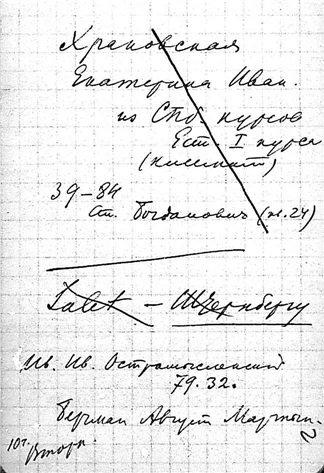 Храповская
Екатерина Иван.
из Спб. курсов
Ест. I курса
39-84
Богданович (к. 24)
Talet - Штернбергу
Ив. Ив. Остромысленский
79.32.
Берман Август Мартын.
10 г.